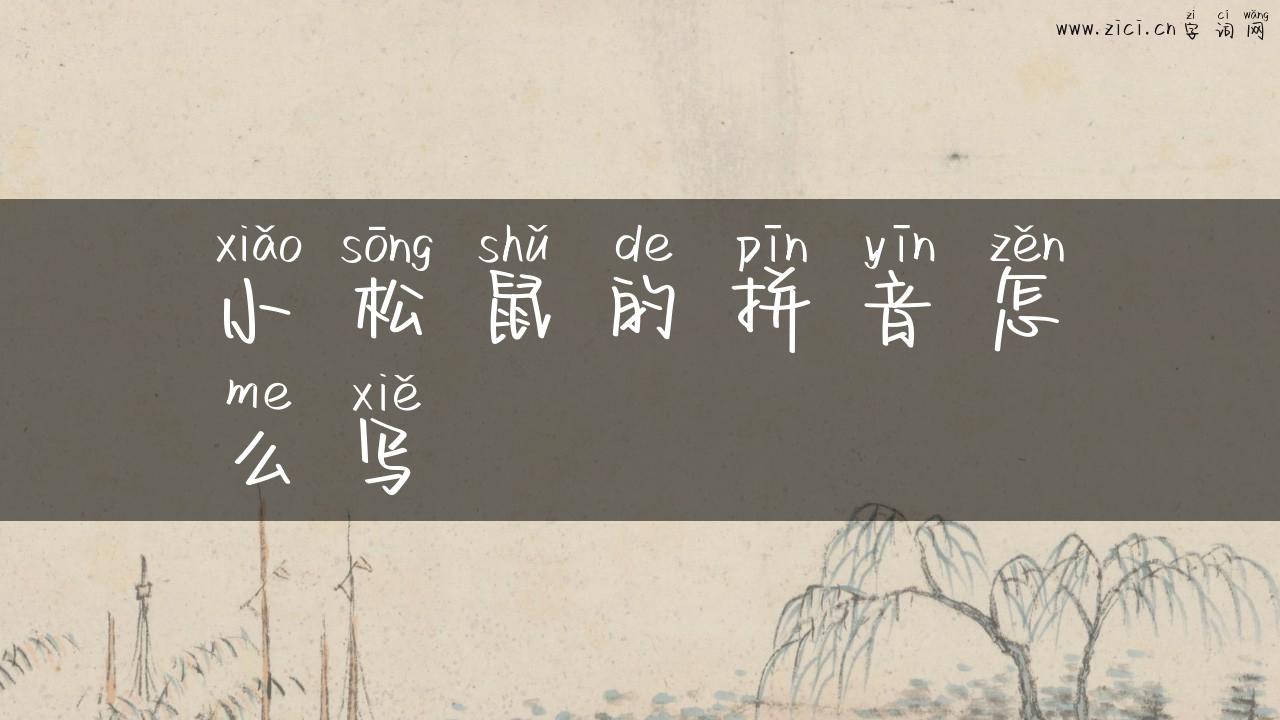 zì cí wǎng
www.zici.cn 字词网
xiǎo sōng shǔ de pīn yīn zěn
小松鼠的拼音怎
me xiě
么写